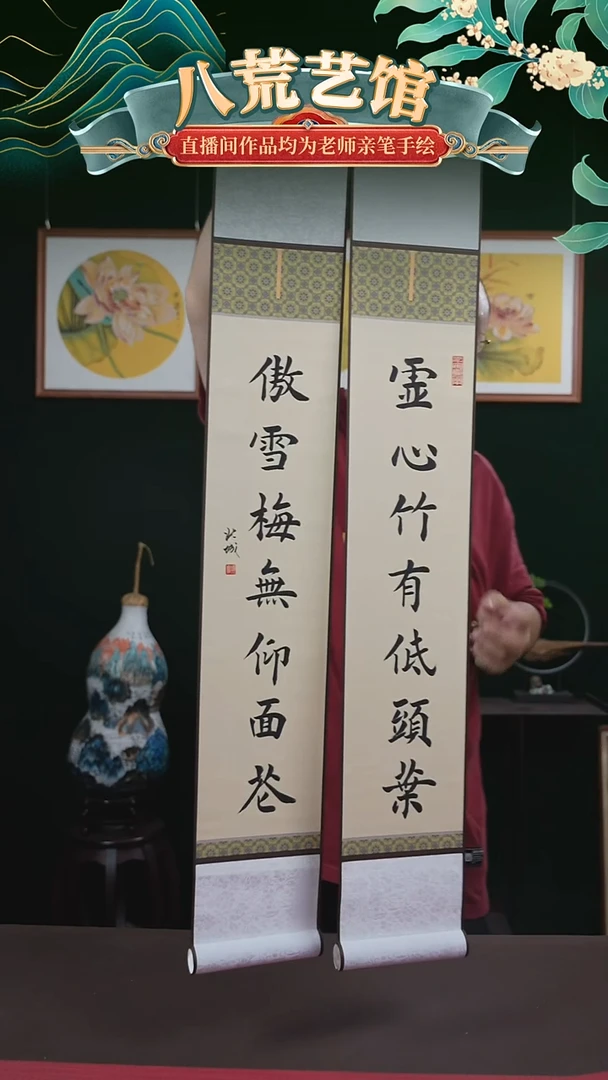 八荒艺馆
直播间作品均为老师亲笔手绘
虚心竹有低頭葉
傲雪梅無仰面花